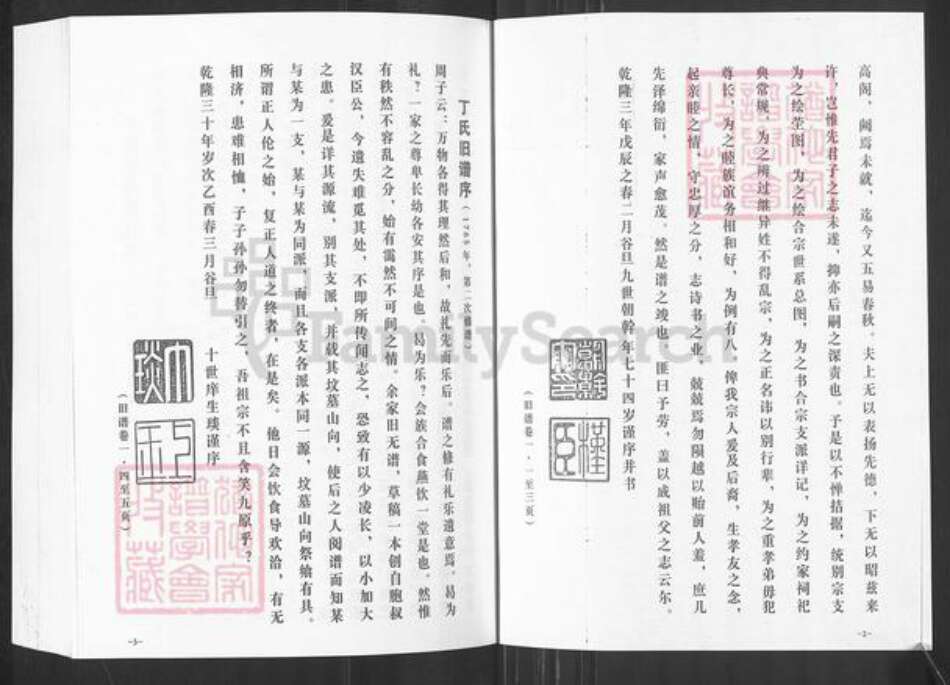 高闶，阙焉未就，迄今又五易春秋。夫上无以表扬先德，下无以昭兹来
许，岂惟先君子之志未遂，抑亦后嗣之深责也。予是以不惮拮据，统别宗支
为之绘茔图，为之绘合宗世系总图，为之书合宗支派详记，为之约家祠祀
典常规，为之辨过继异姓不得乱宗，为之正名讳以别行辈，为之重孝弟毋犯
尊长，为之睦族谊务相和好，为例有八，俾我宗人爱及后裔，生孝友之念，
起亲睦之情，守忠厚之分，志诗书之业，兢兢焉勿陨越以贻前人羞，庶几
先泽绵衍，家声愈茂。然是谱之竣也。匪曰予劳，盖以成祖父之志云尔。
乾隆三年戊辰之春二月谷旦九世朝幹年七十四岁谨序并书
（旧谱卷一·一至三页）
-2-
丁氏旧谱序（1765年，第二次修谱）
周子云：万物各得其理然后和，故礼先而乐后。谱之修有礼乐遗意焉。曷为
礼？一家之尊卑长幼各安其序是也。曷为乐？会族合食燕饮一堂是也。然惟
有秩然不容乱之分，始有蔼然不可间之情。余家旧无谱，草稿一本创自胞叔
汉臣公，今遗失难觅其处，不即所传闻志之，恐致有以少凌长，以小加大
之患。爰是详其源流，别其支派，并载其坟墓山向，使后之人阅谱而知某
与某为一支，某与某为同派，而且各支各派本同一源，坟墓山向祭飨有具。
所谓正人伦之始，复正人道之终者，在是矣。他日会饮食导欢洽，有无
相济，患难相恤，子子孙孙勿替引之，吾祖宗不且含笑九原乎？
乾隆三十年岁次乙酉春三月谷旦
十世庠生琰谨序
（旧谱卷一·四至五页）
-3-
FamilySearch